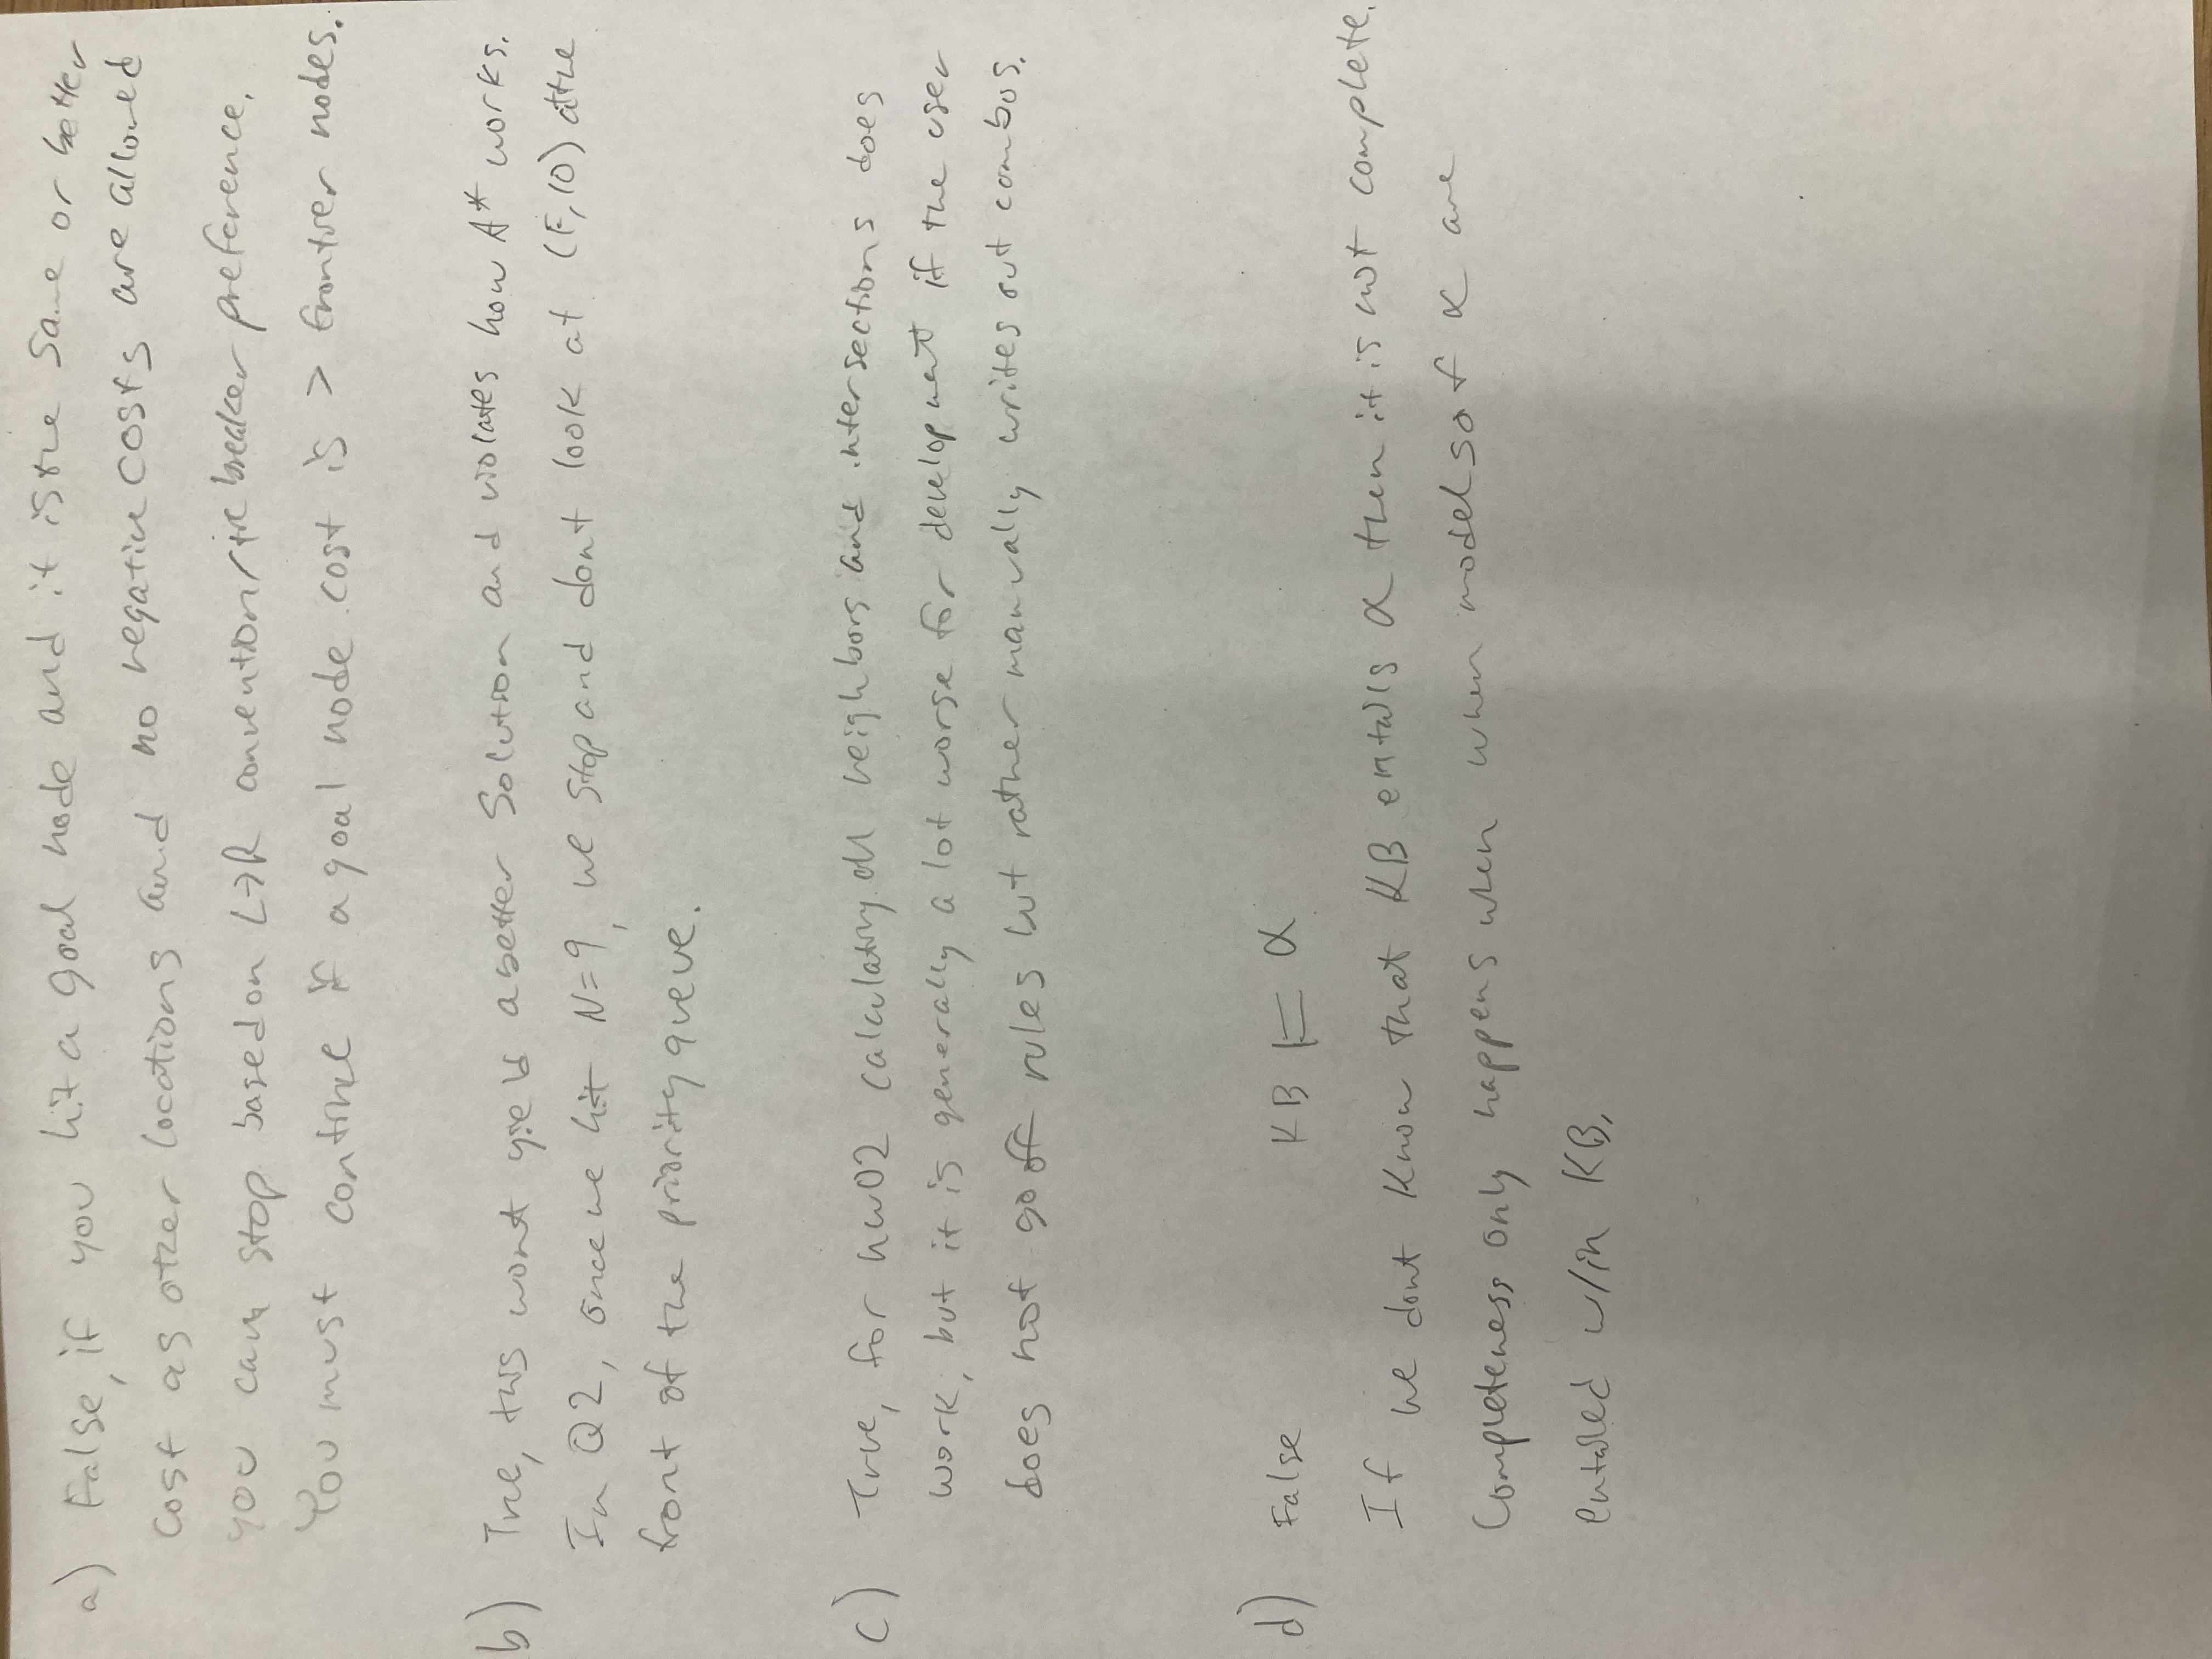 a) False, if you hit a goal node and it is the same or better
cost as other locations and no negative costs are allowed
you can stop based on L→R convention/tie breaker preference.
You must continue if a goal node cost is > frontier nodes.
b) True, this wont yield a better solution and violates how A* works.
In Q2, once we hit N=9, we stop and dont look at (F,10) at the
front of the priority queue.
c) True, for hw02 calculating all neighbors and intersections does
work, but it is generally a lot worse for development if the user
does not go off rules but rather manually writes out combos.
d) False KB ⊨ α
If we dont know that KB entails α then it is not complete.
Completeness only happens when when models of α are
entailed w/in KB.